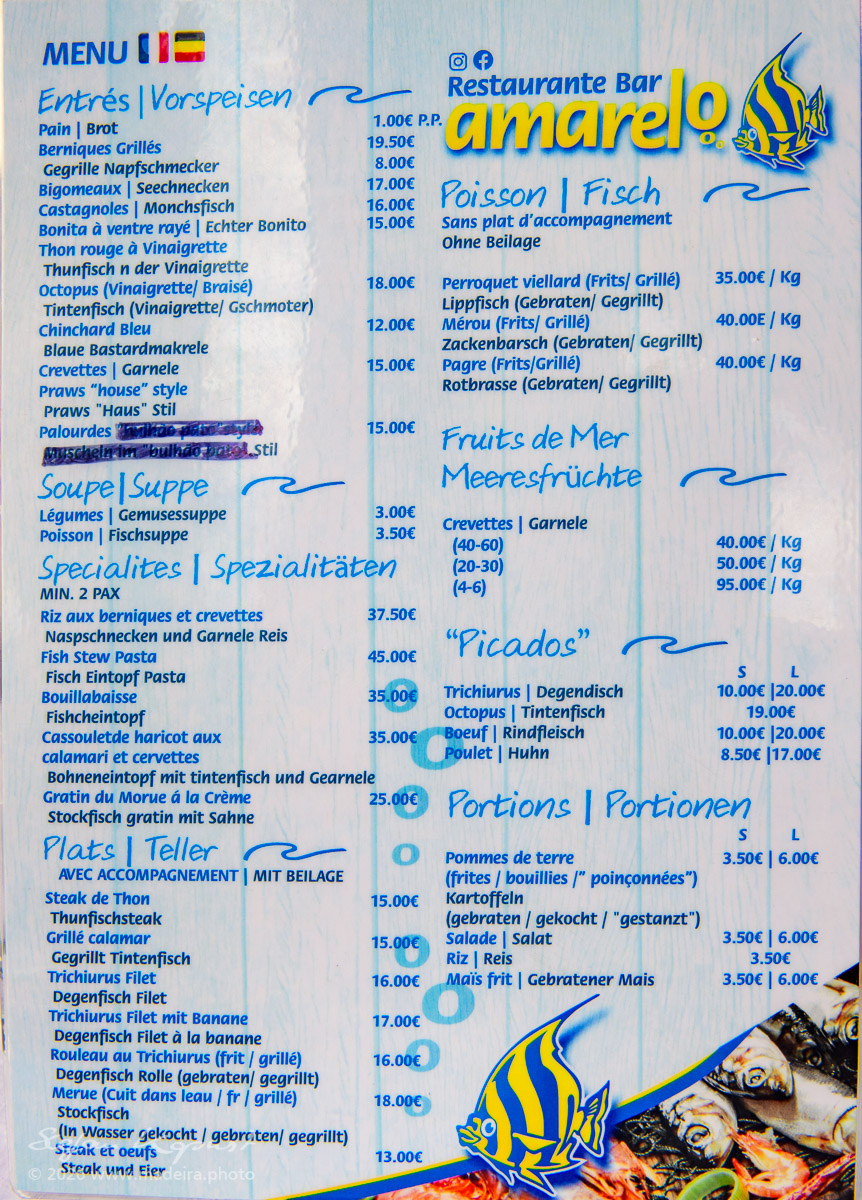 MENU
Entrés | Vorspeisen
Pain | Brot 1.00€ P.P.
Berniques Grillés 19.50€
Gegrille Napfschmecker 8.00€
Bigomeaux | Seechnecken 17.00€
Castagnoles | Monchsfisch 16.00€
Bonita à ventre rayé | Echter Bonito 15.00€
Thon rouge à Vinaigrette
Thunfisch n der Vinaigrette
Octopus (Vinaigrette/ Braisé) 18.00€
Tintenfisch (Vinaigrette/ Gschmoter)
Chinchard Bleu 12.00€
Blaue Bastardmakrele
Crevettes | Garnele 15.00€
Praws “house” style
Praws "Haus" Stil
Palourdes "bulhão pato" style 15.00€
Muscheln im "bulhão pato" Stil
Soupe | Suppe
Légumes | Gemusessuppe 3.00€
Poisson | Fischsuppe 3.50€
Specialites | Spezialitäten
MIN. 2 PAX
Riz aux berniques et crevettes 37.50€
Naspschnecken und Garnele Reis
Fish Stew Pasta 45.00€
Fisch Eintopf Pasta
Bouillabaisse 35.00€
Fishcheintopf
Cassouletde haricot aux 35.00€
calamari et cervettes
Bohneneintopf mit tintenfisch und Gearnele
Gratin du Morue á la Crème 25.00€
Stockfisch gratin mit Sahne
Plats | Teller
AVEC ACCOMPAGNEMENT | MIT BEILAGE
Steak de Thon 15.00€
Thunfischsteak
Grillé calamar 15.00€
Gegrillt Tintenfisch
Trichiurus Filet 16.00€
Degenfisch Filet
Trichiurus Filet mit Banane 17.00€
Degenfisch Filet à la banane
Rouleau au Trichiurus (frit / grillé) 16.00€
Degenfisch Rolle (gebraten/ gegrillt)
Merue (Cuit dans leau / fr / grillé) 18.00€
Stockfisch
(In Wasser gekocht / gebraten/ gegrillt)
Steak et oeufs 13.00€
Steak und Eier
Restaurante Bar
amarelo
Poisson | Fisch
Sans plat d’accompagnement
Ohne Beilage
Perroquet viellard (Frits/ Grillé) 35.00€ / Kg
Lippfisch (Gebraten/ Gegrillt)
Mérou (Frits/ Grillé) 40.00E / Kg
Zackenbarsch (Gebraten/ Gegrillt)
Pagre (Frits/Grillé) 40.00€ / Kg
Rotbrasse (Gebraten/ Gegrillt)
Fruits de Mer
Meeresfrüchte
Crevettes | Garnele
(40-60) 40.00€ / Kg
(20-30) 50.00€ / Kg
(4-6) 95.00€ / Kg
“Picados”
S L
Trichiurus | Degendisch 10.00€ |20.00€
Octopus | Tintenfisch 19.00€
Boeuf | Rindfleisch 10.00€ |20.00€
Poulet | Huhn 8.50€ |17.00€
Portions | Portionen
S L
Pommes de terre 3.50€ | 6.00€
(frites / bouillies /” poinçonnées”)
Kartoffeln
(gebraten / gekocht / "gestanzt")
Salade | Salat 3.50€ | 6.00€
Riz | Reis 3.50€
Maïs frit | Gebratener Mais 3.50€ | 6.00€